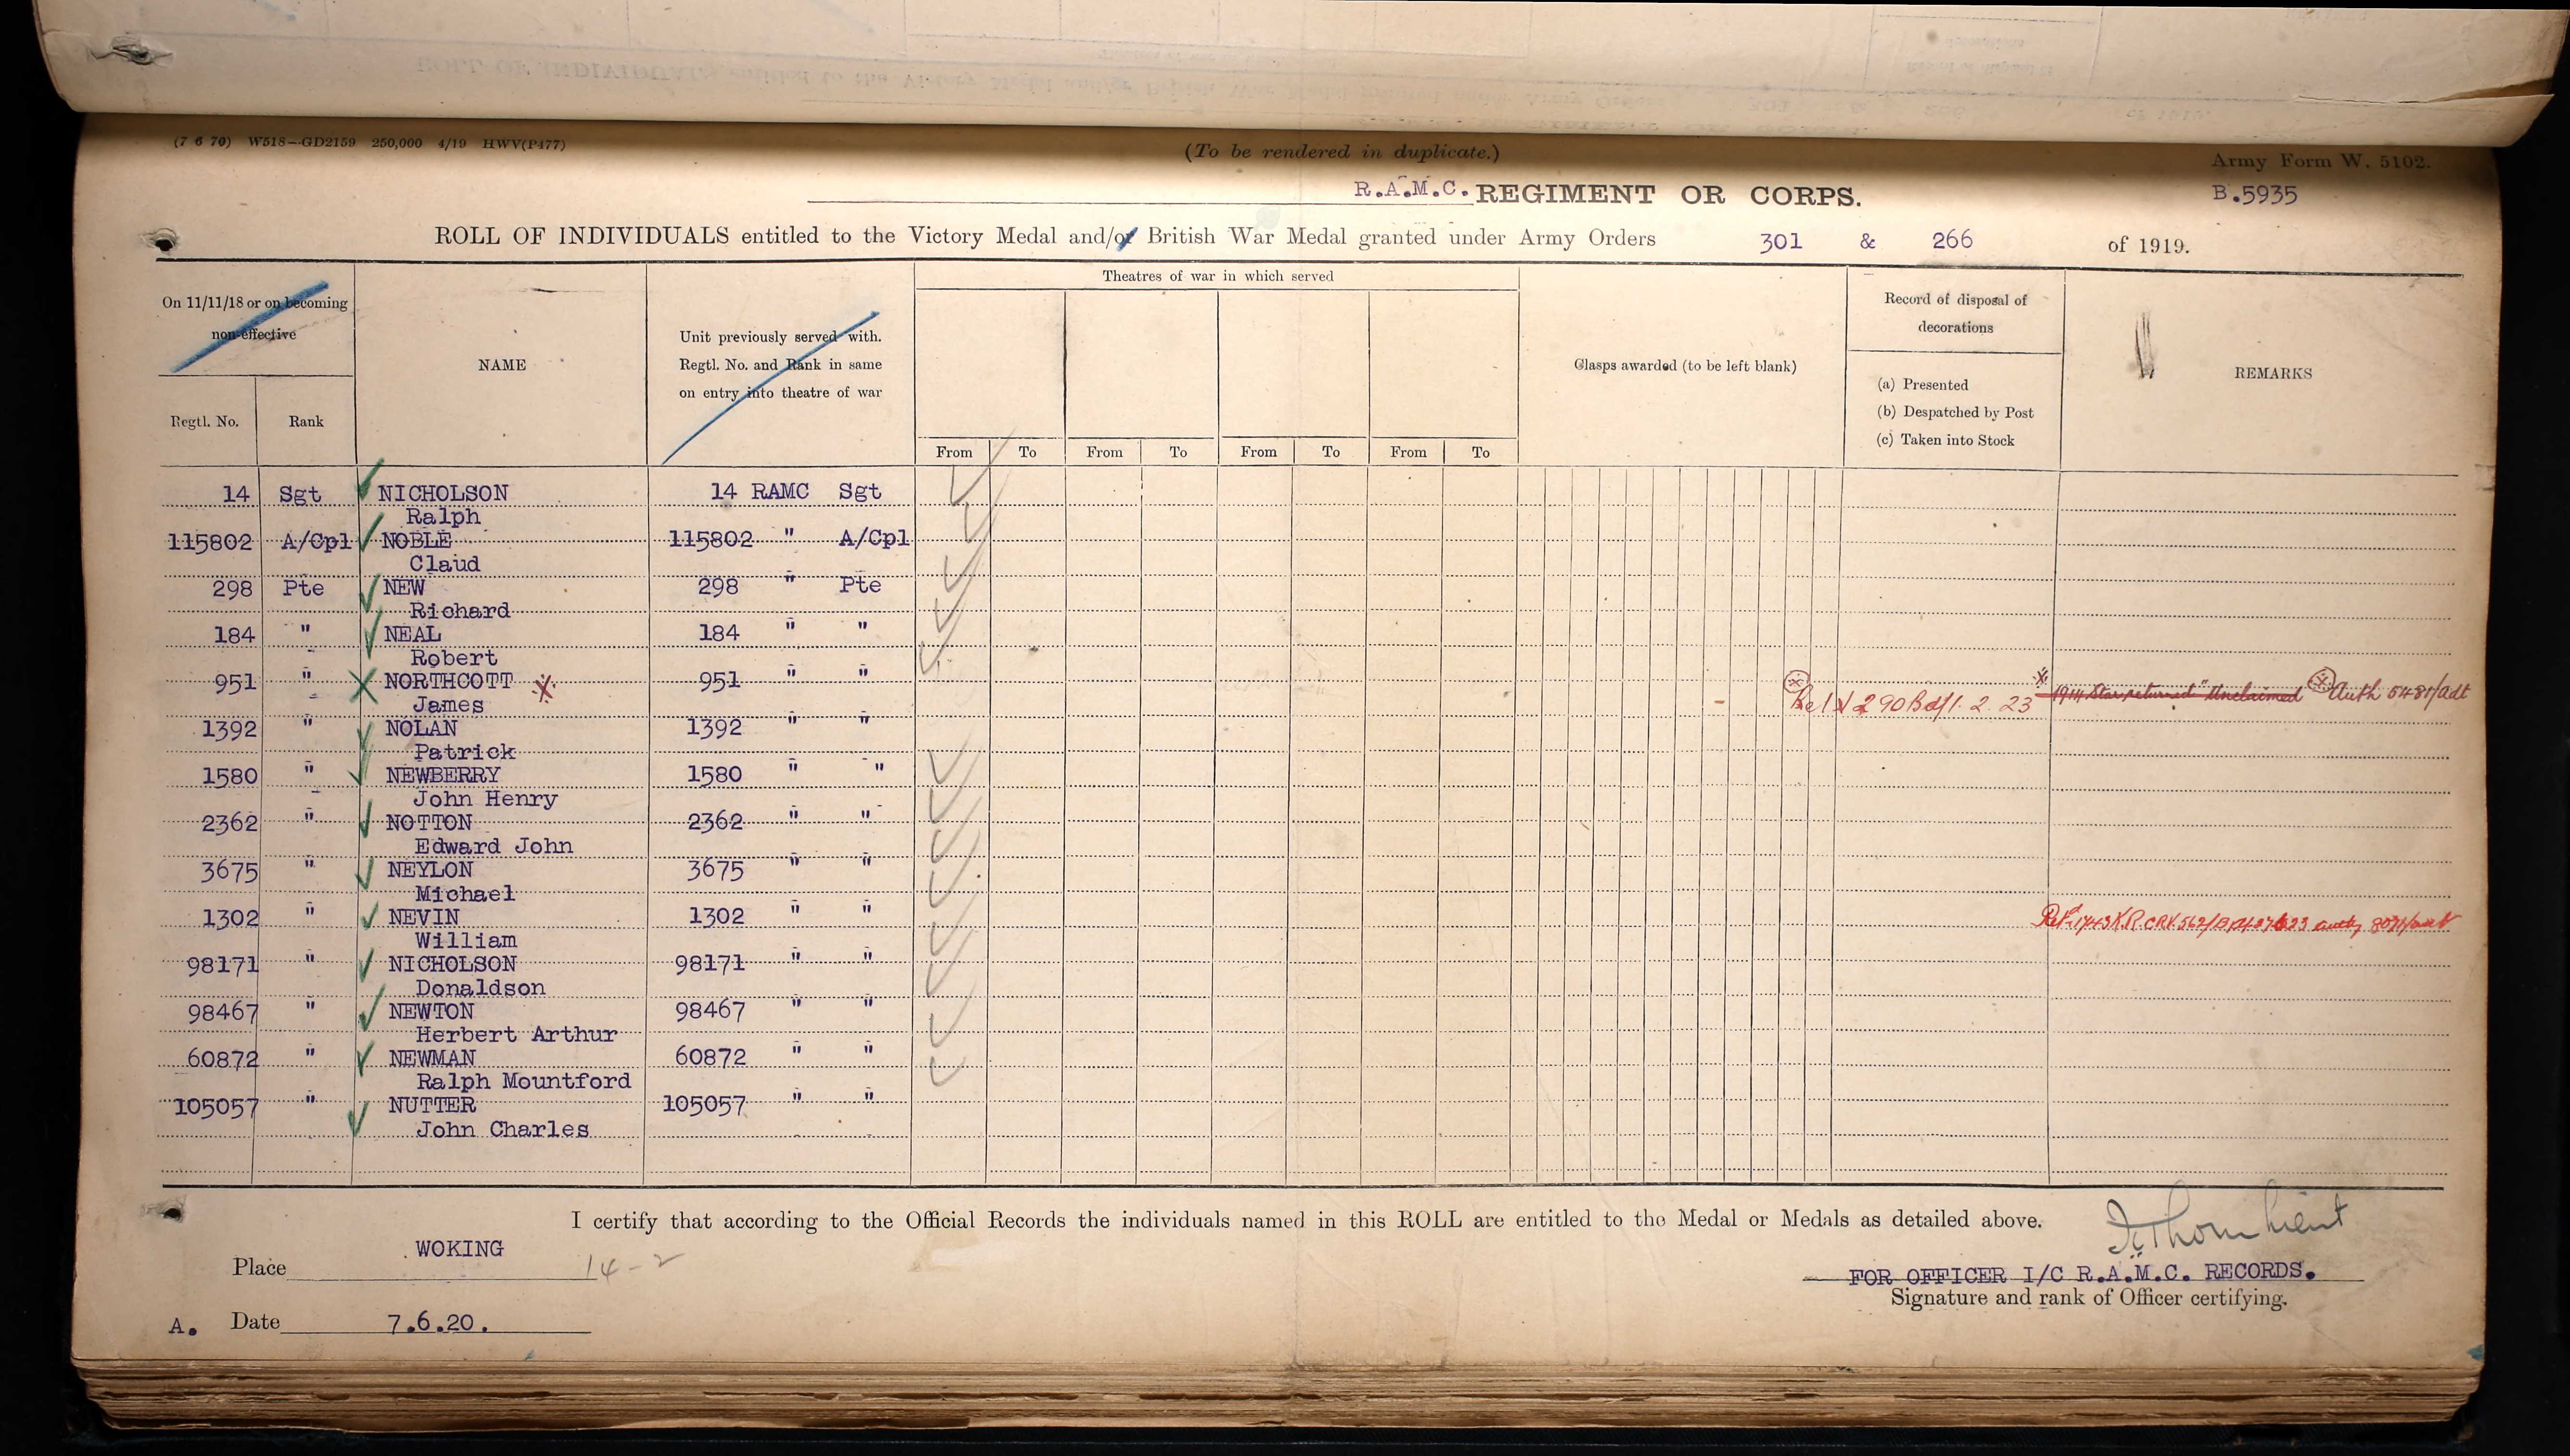 (7 6 70) W518—GD2159 250,000 4/19 HWV(P477)
(To be rendered in duplicate.)
Army Form W. 5102.
R.A.M.C. REGIMENT OR CORPS.
B.5935
ROLL OF INDIVIDUALS entitled to the Victory Medal and/or British War Medal granted under Army Orders 301 & 266 of 1919.
On 11/11/18 or on becoming
non-effective
Regtl. No.
Rank
NAME
Unit previously served with.
Regtl. No. and Rank in same
on entry into theatre of war
Theatres of war in which served
From To From To From To From To
Clasps awarded (to be left blank)
Record of disposal of
decorations
(a) Presented
(b) Despatched by Post
(c) Taken into Stock
REMARKS
14 Sgt NICHOLSON 14 RAMC Sgt
Ralph
115802 A/Cpl NOBLE 115802 " A/Cpl
Claud
298 Pte NEW 298 " Pte
Richard
184 " NEAL 184 " "
Robert
951 " NORTHCOTT 951 " " 1914 Star returned "Unclaimed Auth 5481/adt
James 290 Bd/1. 2. 23
1392 " NOLAN 1392 " "
Patrick
1580 " NEWBERRY 1580 " "
John Henry
2362 " NOTTON 2362 " "
Edward John
3675 " NEYLON 3675 " "
Michael
1302 " NEVIN 1302 " "
William
98171 " NICHOLSON 98171 " "
Donaldson
98467 " NEWTON 98467 " "
Herbert Arthur
60872 " NEWMAN 60872 " "
Ralph Mountford
105057 " NUTTER 105057 " "
John Charles
I certify that according to the Official Records the individuals named in this ROLL are entitled to the Medal or Medals as detailed above.
Place WOKING 14-2
FOR OFFICER I/C R.A.M.C. RECORDS.
Signature and rank of Officer certifying.
A. Date 7.6.20.